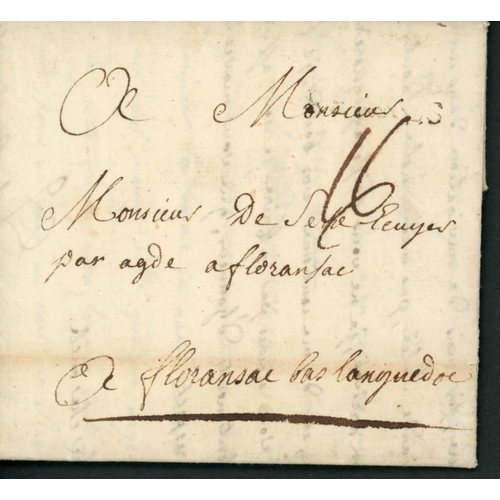 A Monsieur
16
Monsieur De Ecuyer
par agde a floransac
A floransac bas languedoc